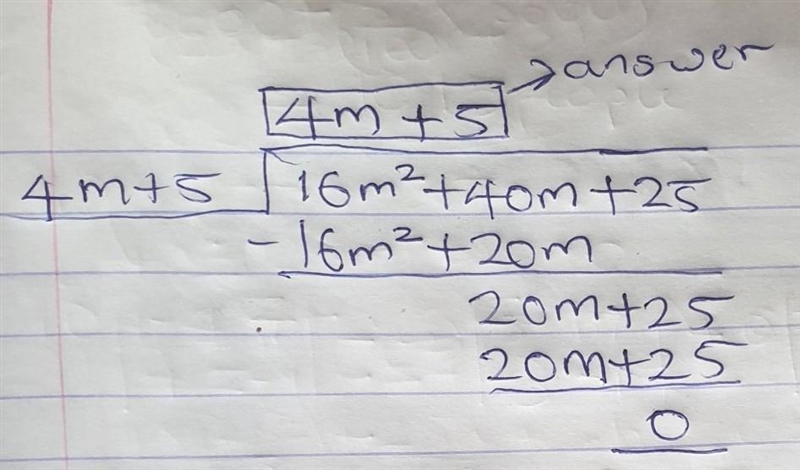 → answer
4m + 5
4m+5 16m²+40m+25
-16m²+20m
20m+25
20m+25
0